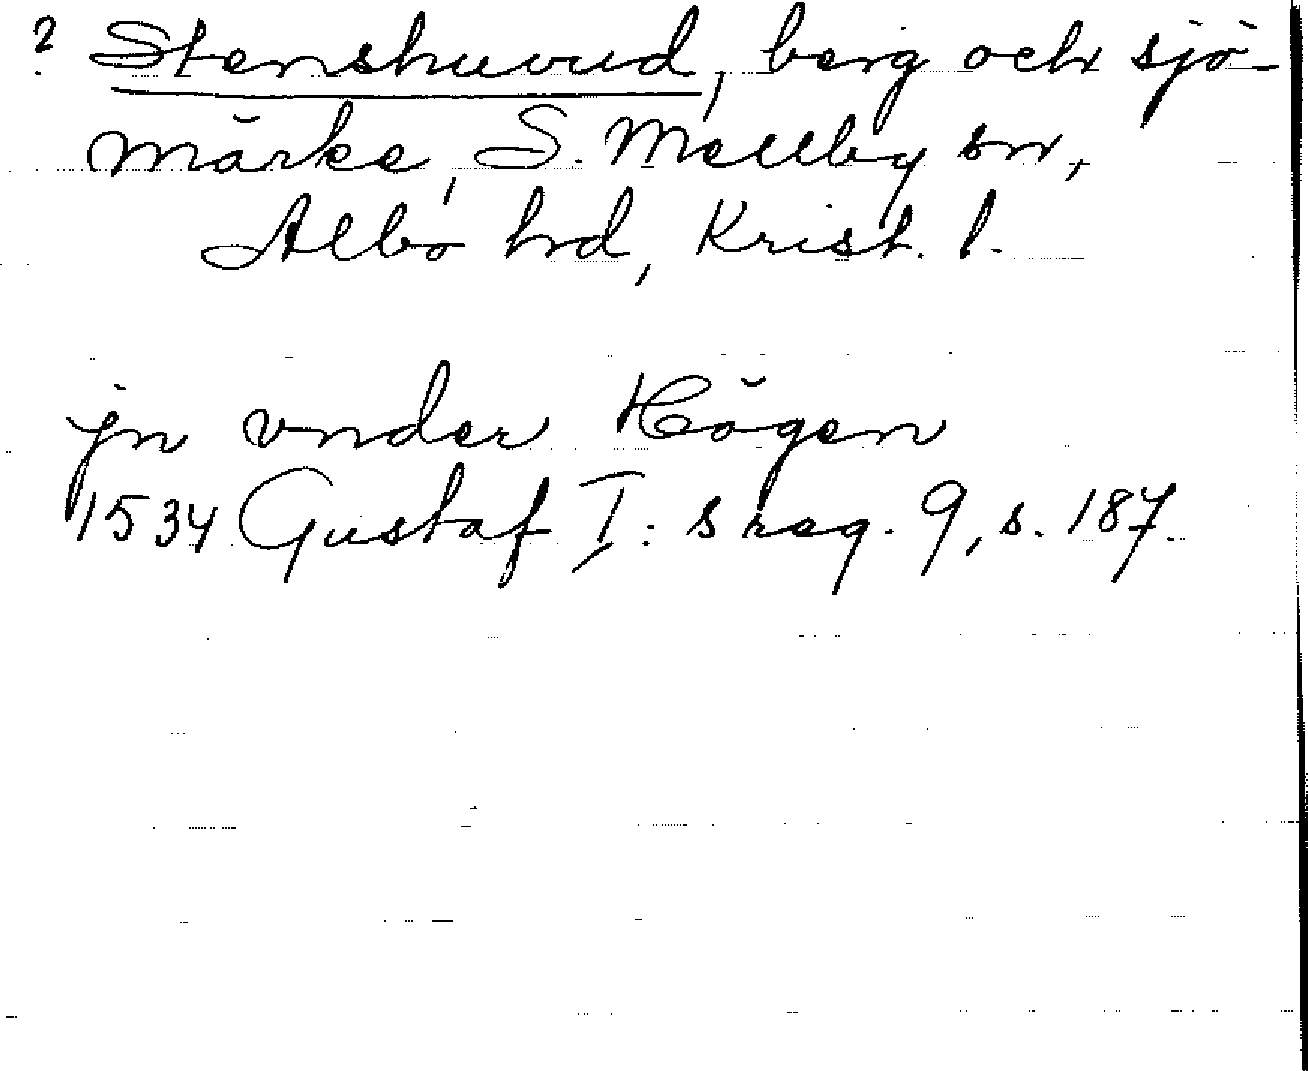 ? Stenshuvud, berg och sjö-
märke, S. Mellby sn,
Albo hd, Krist. l.
jn vnder Högen
1534 Gustaf I:s reg. 9, s. 187.